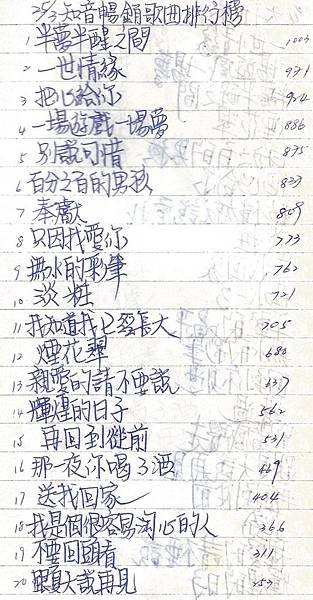 25/3知音暢銷歌曲排行榜
1 半夢半醒之間 1003
2 一世情緣 971
3 把心給你 954
4 一場遊戲一場夢 886
5 別說可惜 875
6 百分之百的男孩 833
7 奉獻 809
8 只因我愛你 773
9 無水的彩筆 762
10 淡粧 721
11 我知道我已經長大 705
12 煙花翠 680
13 親愛的請不要說 637
14 輝煌的日子 562
15 再回到從前 531
16 那一夜你喝了酒 469
17 送我回家 404
18 我是個很容易淘心的人 366
19 不要回頭看 311
20 跟夏天說再見 253